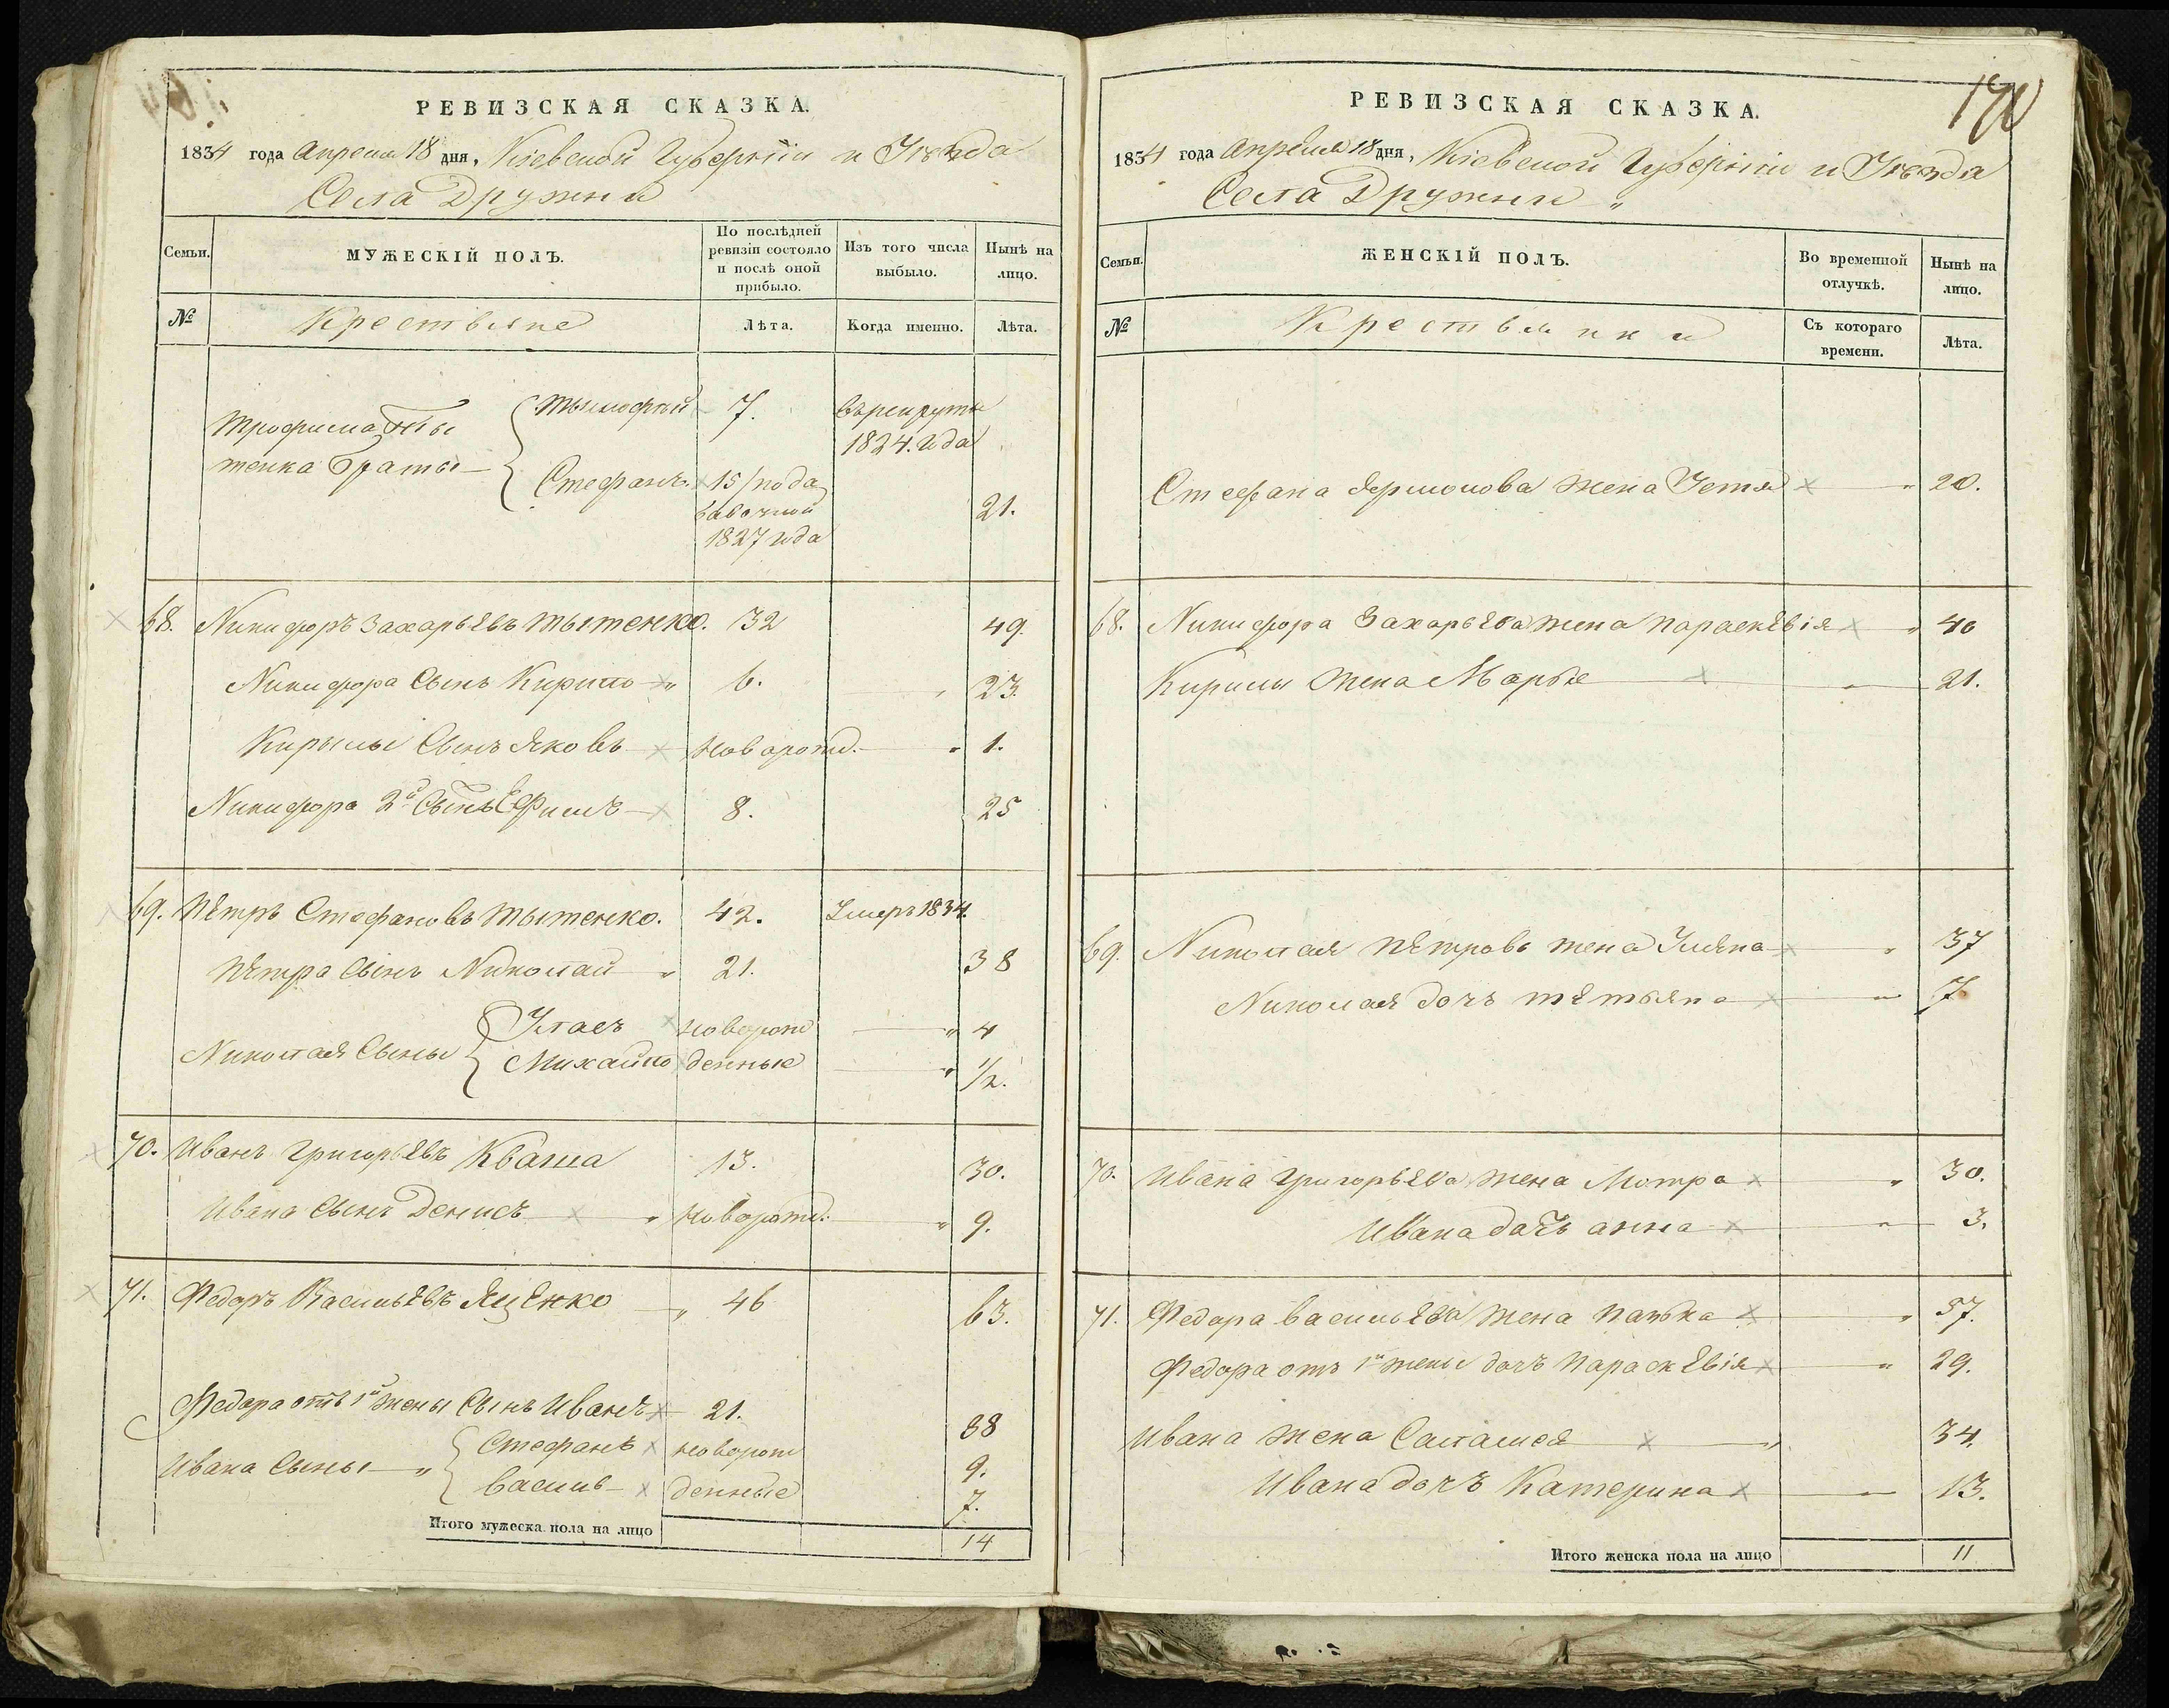 РЕВИЗСКАЯ СКАЗКА.
1834 года Апреля 18 дня, Кіевской Губерніи и Уѣзда
Села Дружни
Семьи.
МУЖЕСКІЙ ПОЛЪ.
По послѣдней ревизіи состояло и послѣ оной прибыло.
Изъ того числа выбыло.
Нынѣ на лицо.
№
Крестьяне
Лѣта.
Когда именно.
Лѣта.
Трофима Ты
тенка Браты
Тымофѣй 7. въ рекруты
1824. года
Стефанъ 15/по да
вочной 21.
1827 года
68. Никифоръ Захарьевъ Тытенко. 32 49.
Никифора Сынъ Кирило " 6. " 23.
Кирылы Сынъ Яковъ новорожд. " 1.
Никифора 2й Сынъ Ефимъ 8. 25
69. Петръ Стефановъ Тытенко. 42. Умеръ 1834.
Петра Сынъ Николай " 21. 38
Николая Сыны
Улась новорож " 4
Михайло денные " 1/2.
70. Иванъ Григорьевъ Кваша 13. 30.
Ивана Сынъ Денисъ " новорожд. " 9.
71. Федоръ Васильевъ Яценко " 46 63.
Федора отъ 1й жены Сынъ Иванъ 21. 38
Ивана Сыны "
Стефанъ новорож 9.
Василь денные 7.
Итого мужеска пола на лицо 14
РЕВИЗСКАЯ СКАЗКА.
170
1834 года Апреля 18 дня, Кіевской Губерніи и Уѣзда
Села Дружни "
Семьи.
ЖЕНСКІЙ ПОЛЪ.
Во временной отлучкѣ.
Нынѣ на лицо.
№
Крестьянки
Съ котораго времени.
Лѣта.
Стефана жена Устя " 20.
68. Никифора Захарьева жена Параскевія " 40
Кирилы жена Марья " 21.
69. Николая Петрова жена Уляна " 37
Николая дочъ Тетьяна " 7
70. Ивана Григорьева жена Мотра " 30.
Ивана дочъ Анна " 3.
71. Федора Васильева жена " 57.
Федора отъ 1й жены дочъ Параскевія " 29.
Ивана жена Саламея " 34.
Ивана дочъ Катерина " 13.
Итого женска пола на лицо 11